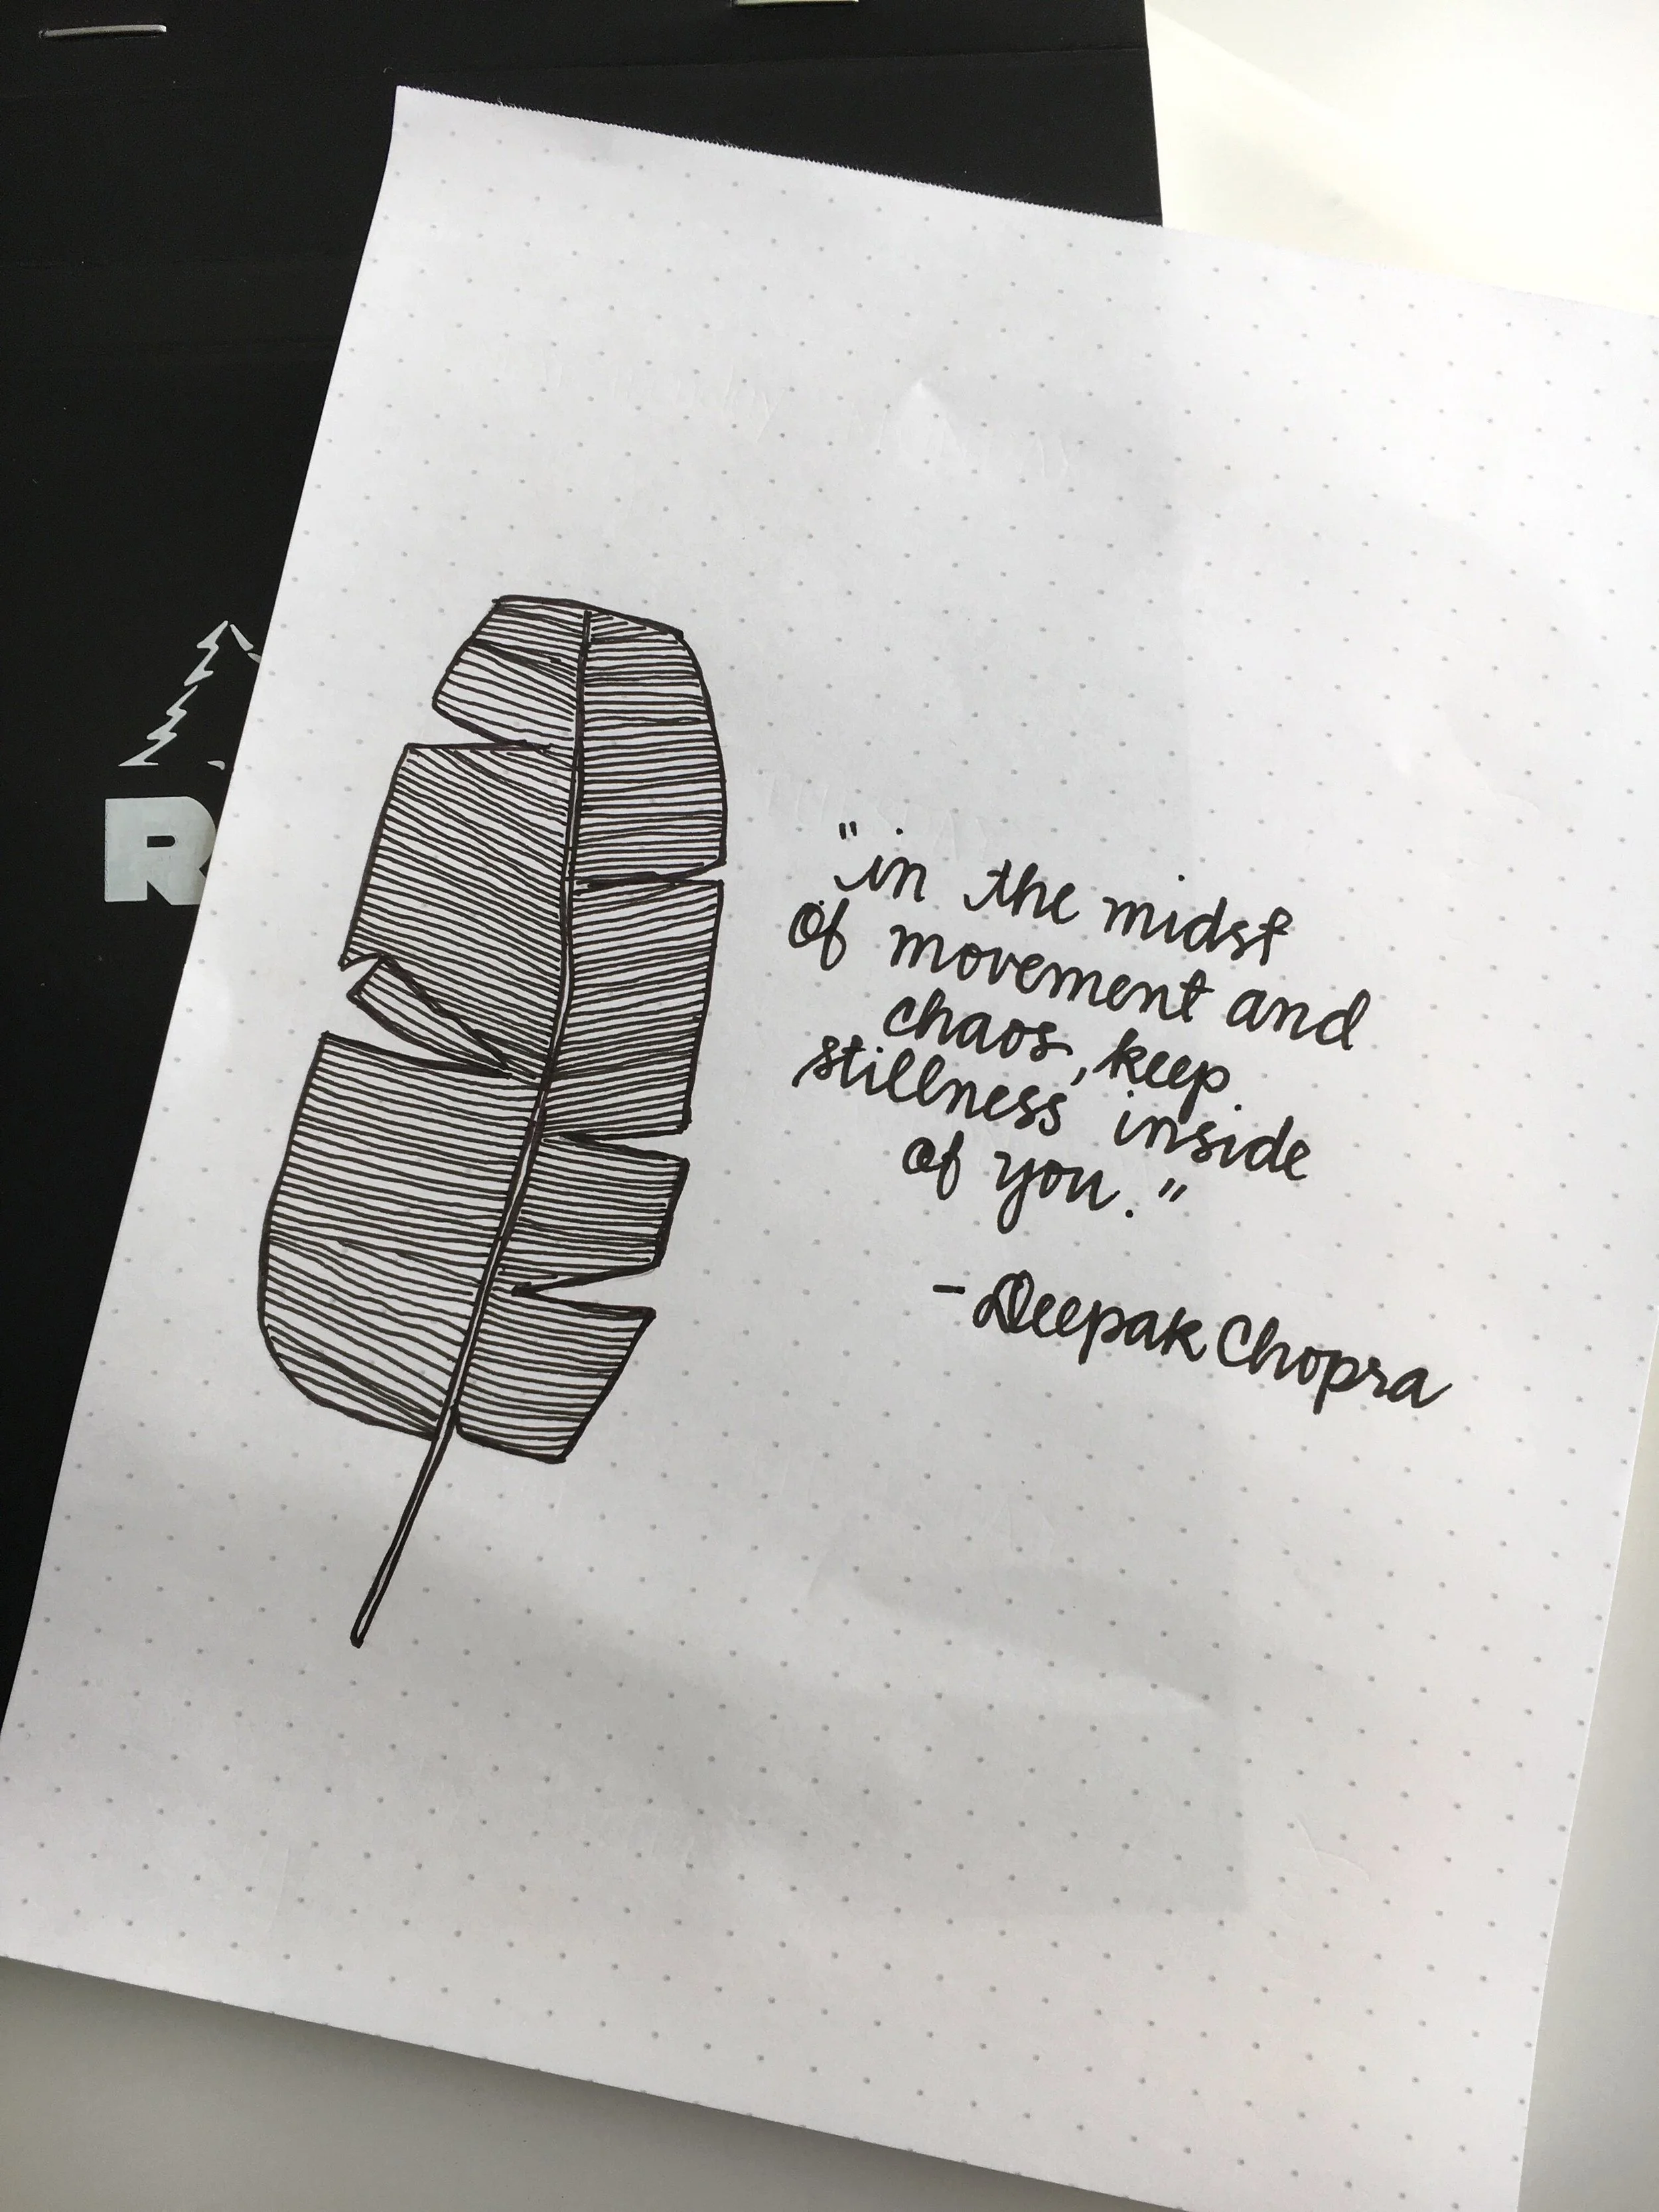 R
"in the midst
of movement and
chaos, keep
stillness inside
of you."
- Deepak Chopra